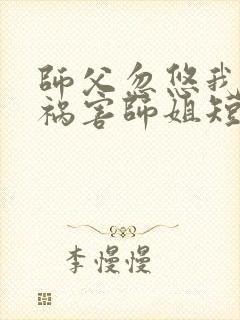 師父忽悠我
祸害師姐短
李慢慢